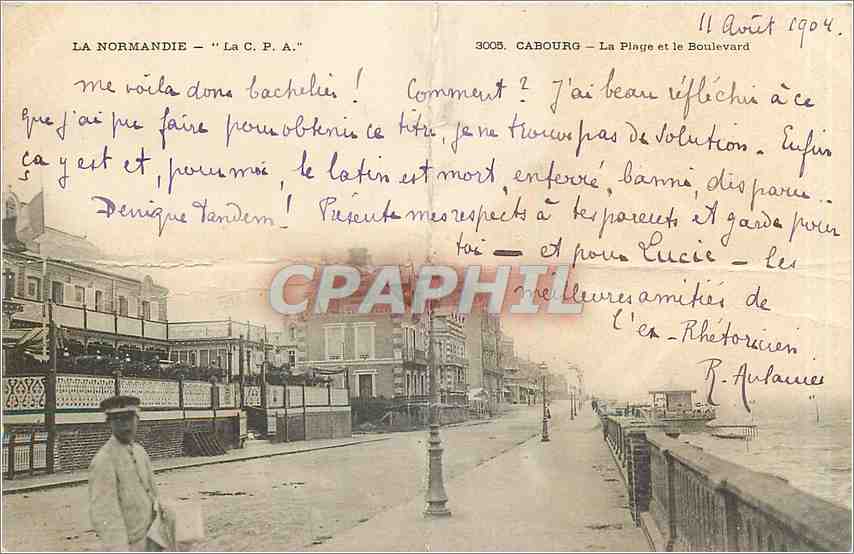 11 Août 1904.
LA NORMANDIE — "La C. P. A."
3005. CABOURG — La Plage et le Boulevard
me voilà donc bachelier ! Comment ? J'ai beau réfléchir à ce
que j'ai pu faire pour obtenir ce titre, je ne trouve pas de solution. Enfin
ça y est et, pour moi, le latin est mort, enterré, banni, disparu..
Denique tandem ! Présente mes respects à tes parents et garde pour
toi — et pour Lucie — les
meilleures amitiés de
l'ex-Rhétoricien
CPAPHIL